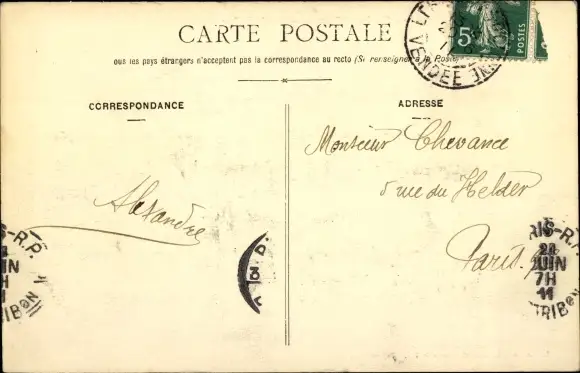 CARTE POSTALE
ous les pays étrangers n'acceptent pas la correspondance au recto (Se renseigner à la Poste)
5
POSTES
VENDÉE
CORRESPONDANCE
ADRESSE
Monsieur Chevance
5 rue du Helder
Paris
Alexandre
IS-R.P.
UIN
RIS-R.P.
21
JUIN
7H
11
TRIBON